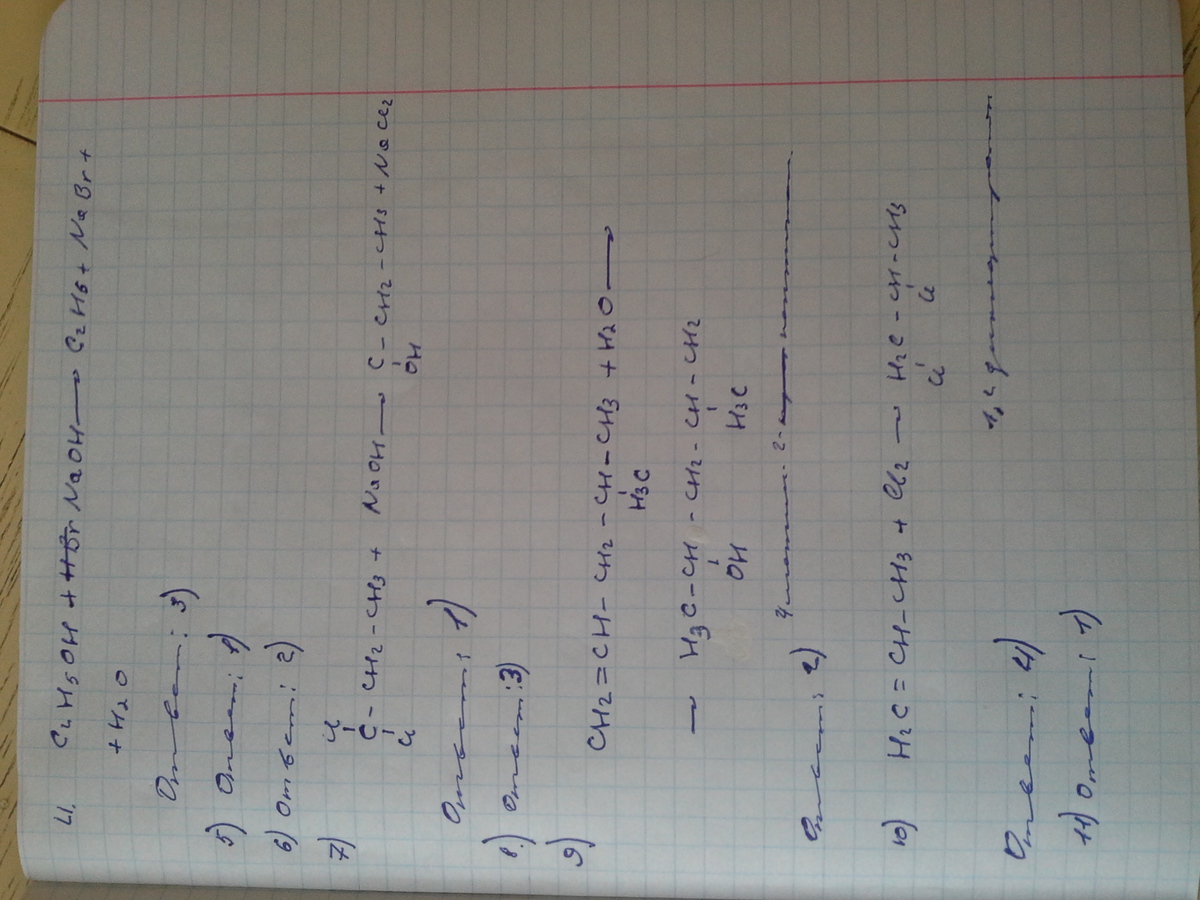 4. C2H5OH + HBr NaOH ⟶ C2H5 + NaBr +
+ H2O
Ответ: 3)
5) Ответ: 1)
6) Ответ: 2)
7)
Cl
C - CH2 - CH3 + NaOH ⟶ C - CH2 - CH3 + NaCl2
Cl OH
Ответ: 1)
8) Ответ: 3)
9) CH2 = CH - CH2 - CH - CH3 + H2O ⟶
H3C
⟶ H3C - CH - CH2 - CH - CH2
OH H3C
Ответ: 2)
10) H2C = CH - CH3 + Cl2 ⟶ H2C - CH - CH3
Cl Cl
1,2
Ответ: 4)
11) Ответ: 1)